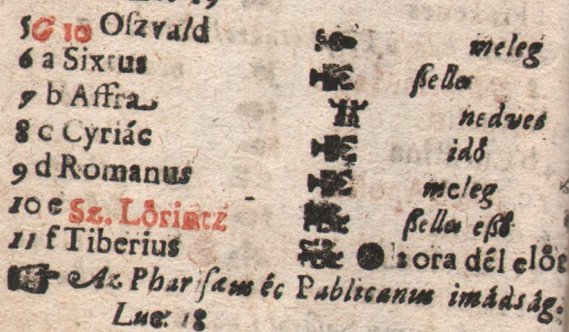 5 G 10 Oſzvald meleg
6 a Sixtus ßelles
7 b Affra nedves
8 c Cyriác idő
9 d Romanus meleg
10 e Sz. Lőrincz ßelles eßő
11 f Tiberius ora dél előt
Az Phariſæus éc Publicanus imádság.
Luc. 18